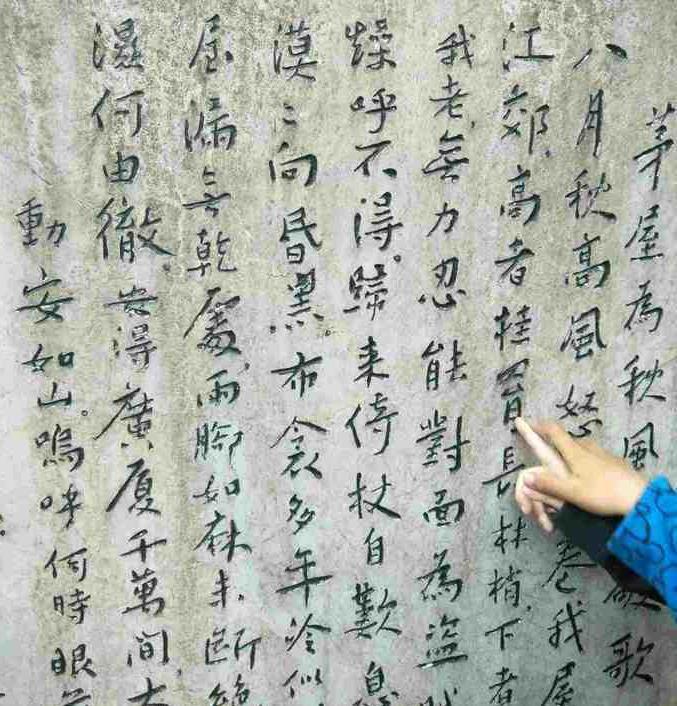 茅屋為秋風破歌
八月秋高風怒卷我屋
江郊,高者挂罥長林梢,下者
我老無力忍能對面為盜賊
燥呼不得。歸来倚杖自歎息
漠〻向昏黑。布衾多年冷似
屋漏無乾處,雨腳如麻未斷絕
濕何由徹。安得廣厦千萬間,大
動安如山。嗚呼何時眼前